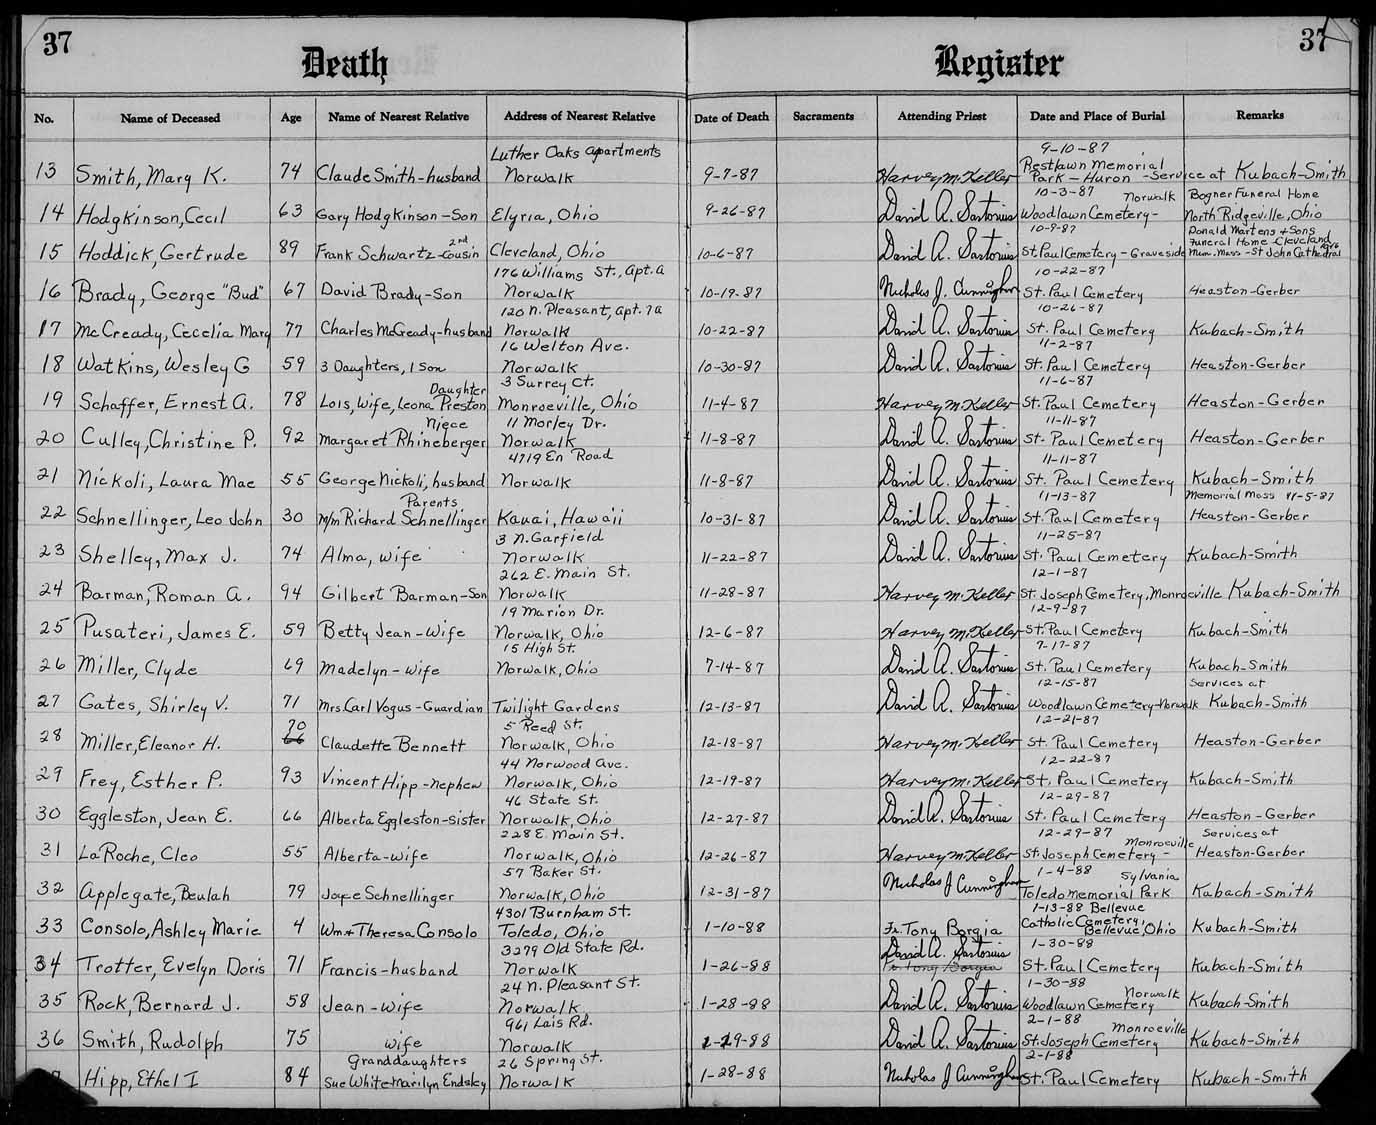 37 37
Death Register
No. Name of Deceased Age Name of Nearest Relative Address of Nearest Relative Date of Death Sacraments Attending Priest Date and Place of Burial Remarks
Luther Oaks Apartments 9-10-87
Restlawn Memorial
13 Smith, Mary K. 74 Claude Smith-husband Norwalk 9-7-87 Harvey McKeller Park - Huron - Service at Kubach-Smith
10-3-87 Norwalk Bogner Funeral Home
14 Hodgkinson, Cecil 63 Gary Hodgkinson-Son Elyria, Ohio 9-26-87 David A. Sartorius Woodlawn Cemetery- North Ridgeville, Ohio
10-9-87 Donald Martens + Sons
2nd Funeral Home Cleveland
15 Hoddick, Gertrude 89 Frank Schwartz-Cousin Cleveland, Ohio 10-6-87 David A. Sartorius St Paul Cemetery - Graveside Mem. Mass - St John Cathedral
176 Williams St., Apt. A 10-22-87
16 Brady, George "Bud" 67 David Brady-Son Norwalk 10-19-87 Nicholas J. Cunningham St. Paul Cemetery Heaston-Gerber
120 N. Pleasant, Apt. 7A 10-26-87
17 McCready, Cecelia Mary 77 Charles McCready-husband Norwalk 10-22-87 David A. Sartorius St. Paul Cemetery Kubach-Smith
16 Welton Ave. 11-2-87
18 Watkins, Wesley G 59 3 Daughters, 1 Son Norwalk 10-30-87 David A. Sartorius St. Paul Cemetery Heaston-Gerber
Daughter 3 Surrey Ct. 11-6-87
19 Schaffer, Ernest A. 78 Lois, Wife, Leona Preston Monroeville, Ohio 11-4-87 Harvey McKeller St. Paul Cemetery Heaston-Gerber
Niece 11 Morley Dr. 11-11-87
20 Culley, Christine P. 92 Margaret Rhineberger Norwalk 11-8-87 David A. Sartorius St. Paul Cemetery Heaston-Gerber
4719 En Road 11-11-87
21 Nickoli, Laura Mae 55 George Nickoli, husband Norwalk 11-8-87 David A. Sartorius St. Paul Cemetery Kubach-Smith
Parents 11-13-87 Memorial Mass 11-5-87
22 Schnellinger, Leo John 30 M/m Richard Schnellinger Kauai, Hawaii 10-31-87 David A. Sartorius St. Paul Cemetery Heaston-Gerber
3 N. Garfield 11-25-87
23 Shelley, Max J. 74 Alma, wife Norwalk 11-22-87 David A. Sartorius St. Paul Cemetery Kubach-Smith
262 E. Main St. 12-1-87
24 Barman, Roman A. 94 Gilbert Barman-Son Norwalk 11-28-87 Harvey McKeller St. Joseph Cemetery, Monroeville Kubach-Smith
19 Marion Dr. 12-9-87
25 Pusateri, James E. 59 Betty Jean-Wife Norwalk, Ohio 12-6-87 Harvey McKeller St. Paul Cemetery Kubach-Smith
15 High St. 7-17-87
26 Miller, Clyde 69 Madelyn-wife Norwalk, Ohio 7-14-87 David A. Sartorius St. Paul Cemetery Kubach-Smith
12-15-87 Services at
27 Gates, Shirley V. 71 Mrs. Carl Vogus-Guardian Twilight Gardens 12-13-87 David A. Sartorius Woodlawn Cemetery-Norwalk Kubach-Smith
70 5 Reed St. 12-21-87
28 Miller, Eleanor H. 66 Claudette Bennett Norwalk, Ohio 12-18-87 Harvey McKeller St. Paul Cemetery Heaston-Gerber
44 Norwood Ave. 12-22-87
29 Frey, Esther P. 93 Vincent Hipp-nephew Norwalk, Ohio 12-19-87 Harvey McKeller St. Paul Cemetery Kubach-Smith
46 State St. 12-29-87
30 Eggleston, Jean E. 66 Alberta Eggleston-Sister Norwalk, Ohio 12-27-87 David A. Sartorius St. Paul Cemetery Heaston-Gerber
228 E. Main St. 12-29-87 Monroeville Services at
31 LaRoche, Cleo 55 Alberta-wife Norwalk, Ohio 12-26-87 Harvey McKeller St. Joseph Cemetery - Heaston-Gerber
57 Baker St. 1-4-88 Sylvania
32 Applegate, Beulah 79 Joyce Schnellinger Norwalk, Ohio 12-31-87 Nicholas J Cunningham Toledo Memorial Park Kubach-Smith
4301 Burnham St. 1-13-88 Bellevue
33 Consolo, Ashley Marie 4 Wm + Theresa Consolo Toledo, Ohio 1-10-88 Fr. Tony Borgia Catholic Cemetery, Bellevue, Ohio Kubach-Smith
3279 Old State Rd. David A. Sartorius 1-30-88
34 Trotter, Evelyn Doris 71 Francis-husband Norwalk 1-26-88 Fr. Tony Borgia St. Paul Cemetery Kubach-Smith
24 N. Pleasant St. 1-30-88 Norwalk
35 Rock, Bernard J. 58 Jean-Wife Norwalk 1-28-88 David A. Sartorius Woodlawn Cemetery Kubach-Smith
961 Lais Rd. 2-1-88 Monroeville
36 Smith, Rudolph 75 wife Norwalk 1-29-88 David A. Sartorius St. Joseph Cemetery Kubach-Smith
Granddaughters 26 Spring St. 2-1-88
7 Hipp, Ethel I 84 Sue White Marilyn Endsley Norwalk 1-28-88 Nicholas J Cunningham St. Paul Cemetery Kubach-Smith